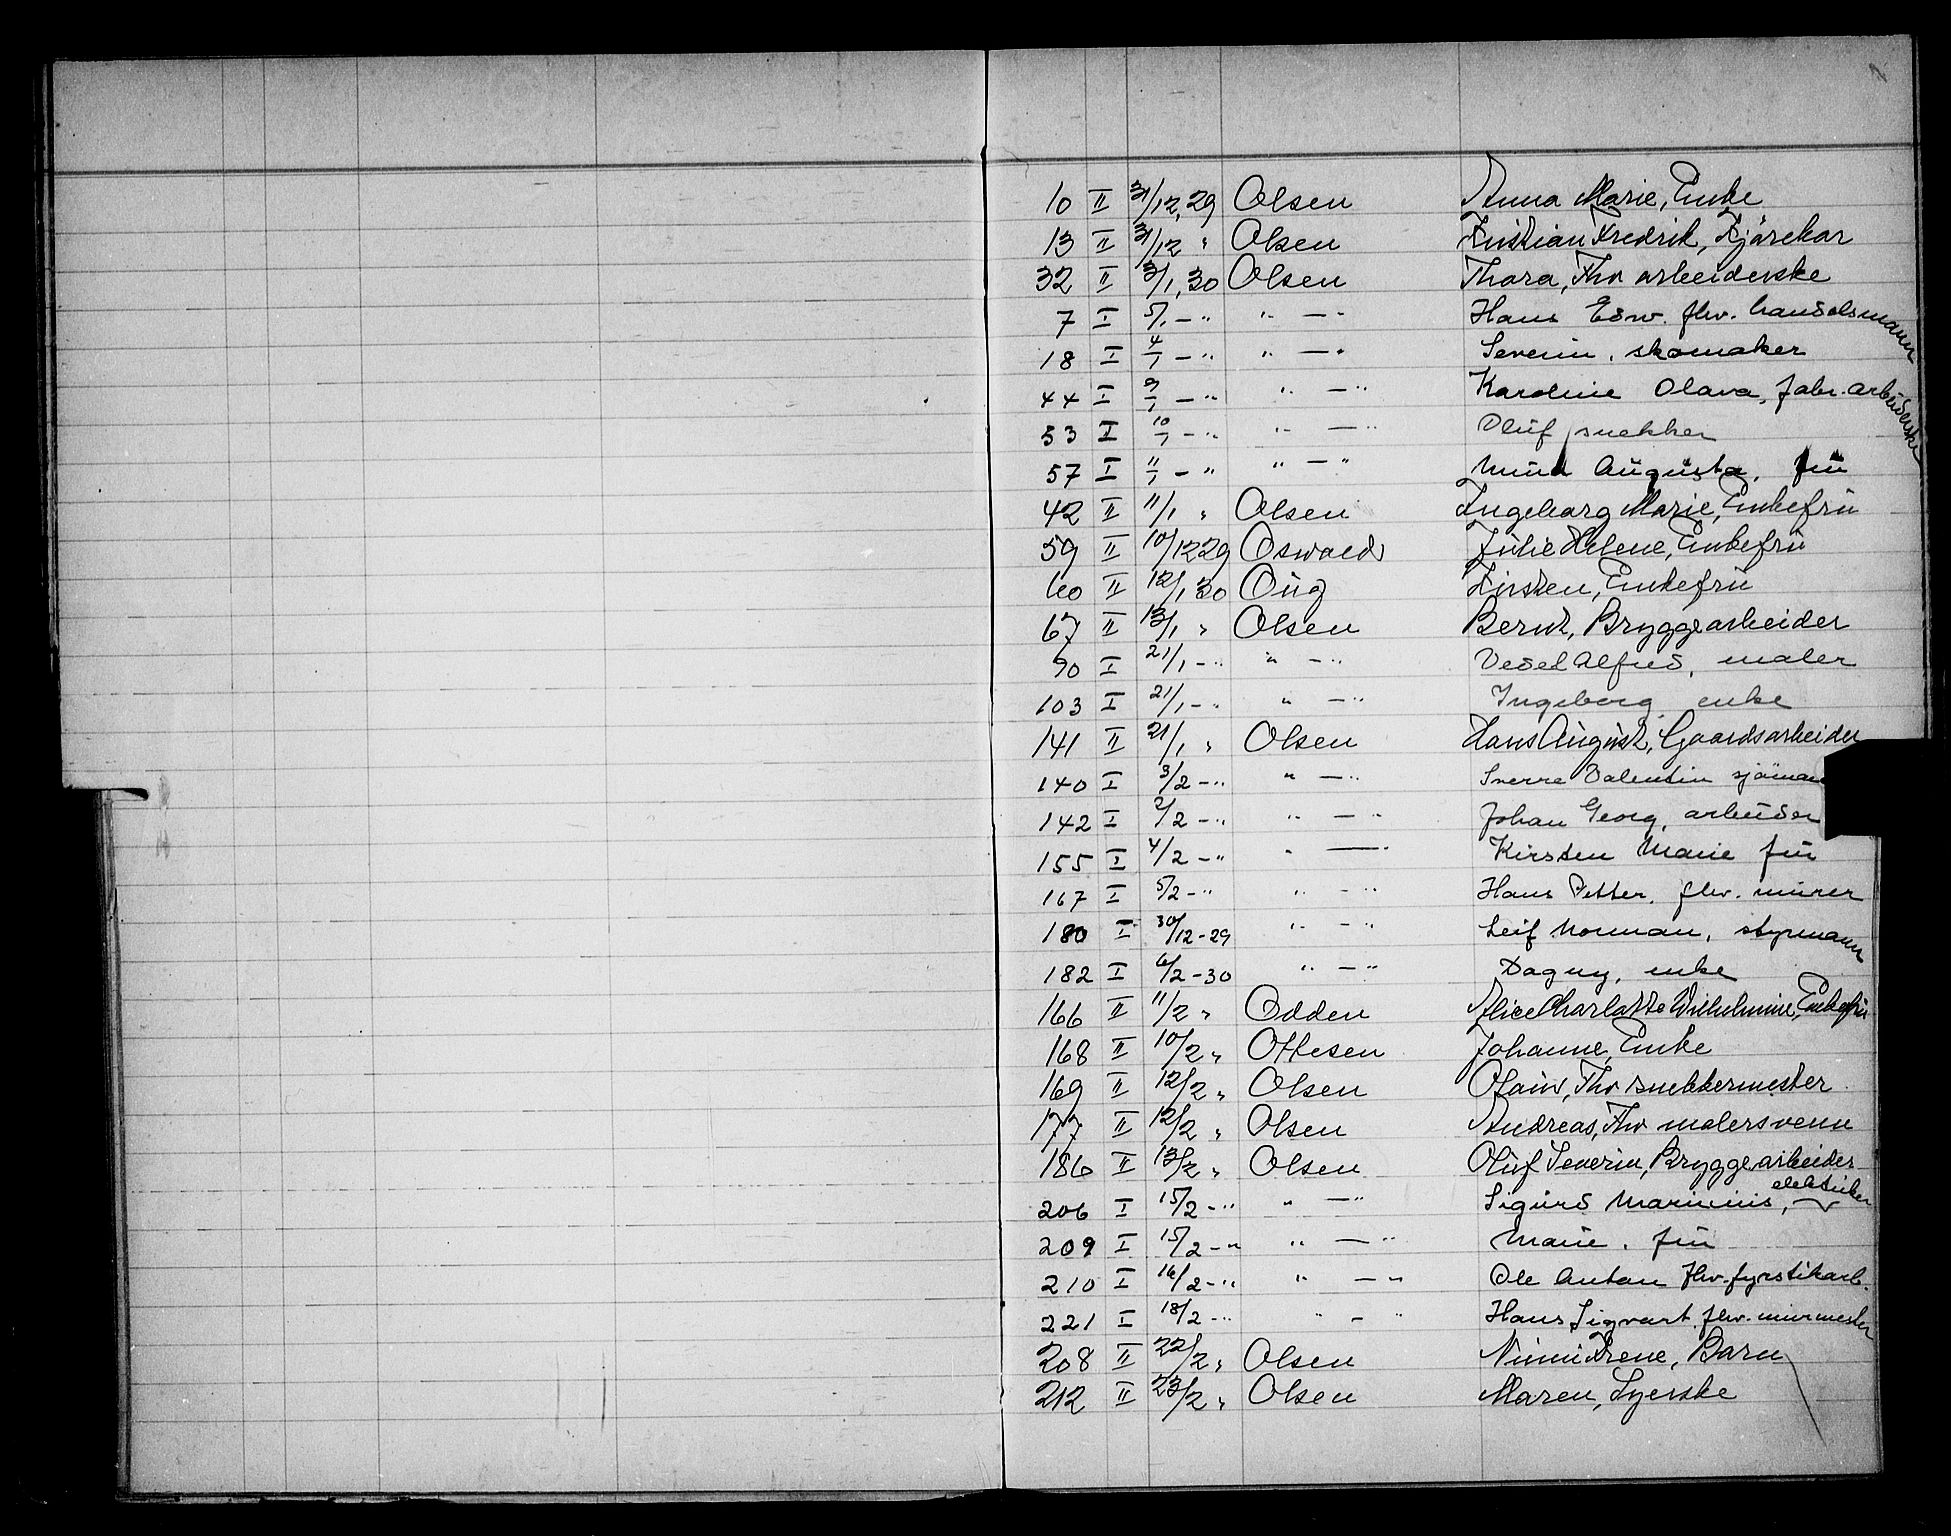 10 II 31/12, 29 Olsen Anna Marie, Enke
13 II 31/12 " Olsen Kristian Fredrik, Kjörekar
32 II 3/1, 30 Olsen Thora, Fhv arbeiderske
7 I 5/1 - " " - " Hans Edw. fhv. handelsmann
18 I 4/1 - " " - " Severin, skomaker
44 I 9/1 - " " - " Karoline Olava, fabr. arbeiderske
53 I 10/1 - " " - " Oluf snekker
57 I 11/1 - " " - " Mina Augusta, frü
42 II 11/1 " Olsen Ingeborg Marie, Enkefrü
59 II 10/12 29 Oswald Julie Helene, Enkefrü
60 II 12/1 30 Kirsten, Enkefrü
67 II 13/1 " Olsen Bernt, Bryggearbeider
90 I 21/1 - " " - " Alfred, maler
103 I 21/1 - " " - " Ingeborg enke
141 II 21/1 " Olsen Hans August, Gaardsarbeider
140 I 3/2 - " " - " Sverre Valentin sjöman
142 I 2/2 - " " - " Johan Georg, arbeider
155 I 4/2 - " " - " Kirsten Marie frü
167 I 5/2 - " " - " Hans Petter, fhv. murer
180 I 30/12 - 29 " - " Leif Norman, styrmann
182 I 6/2 - 30 " - " Dagny, enke
166 II 11/2 " Odden Alice Charlotte Wilhelmine, Enkefrü
168 II 10/2 " Ottesen Johanne, Enke
169 II 12/2 " Olsen Olaiv, Fhv snekkermester
177 II 12/2 " Olsen Andreas, Fhv malersvenn
186 II 13/2 " Olsen Oluf Severin, Bryggearbeider
206 I 15/2 - " " - " Sigurd Marinius, elektriker
209 I 15/2 - " " - " Marie, frü
210 I 16/2 - " " - " Ole Anton fhv. fyrstikarb.
221 I 18/2 - " " - " Hans Sigvart fhv. murmester
208 II 22/2 " Olsen Irene, Barn
212 II 23/2 " Olsen Maren, Syerske